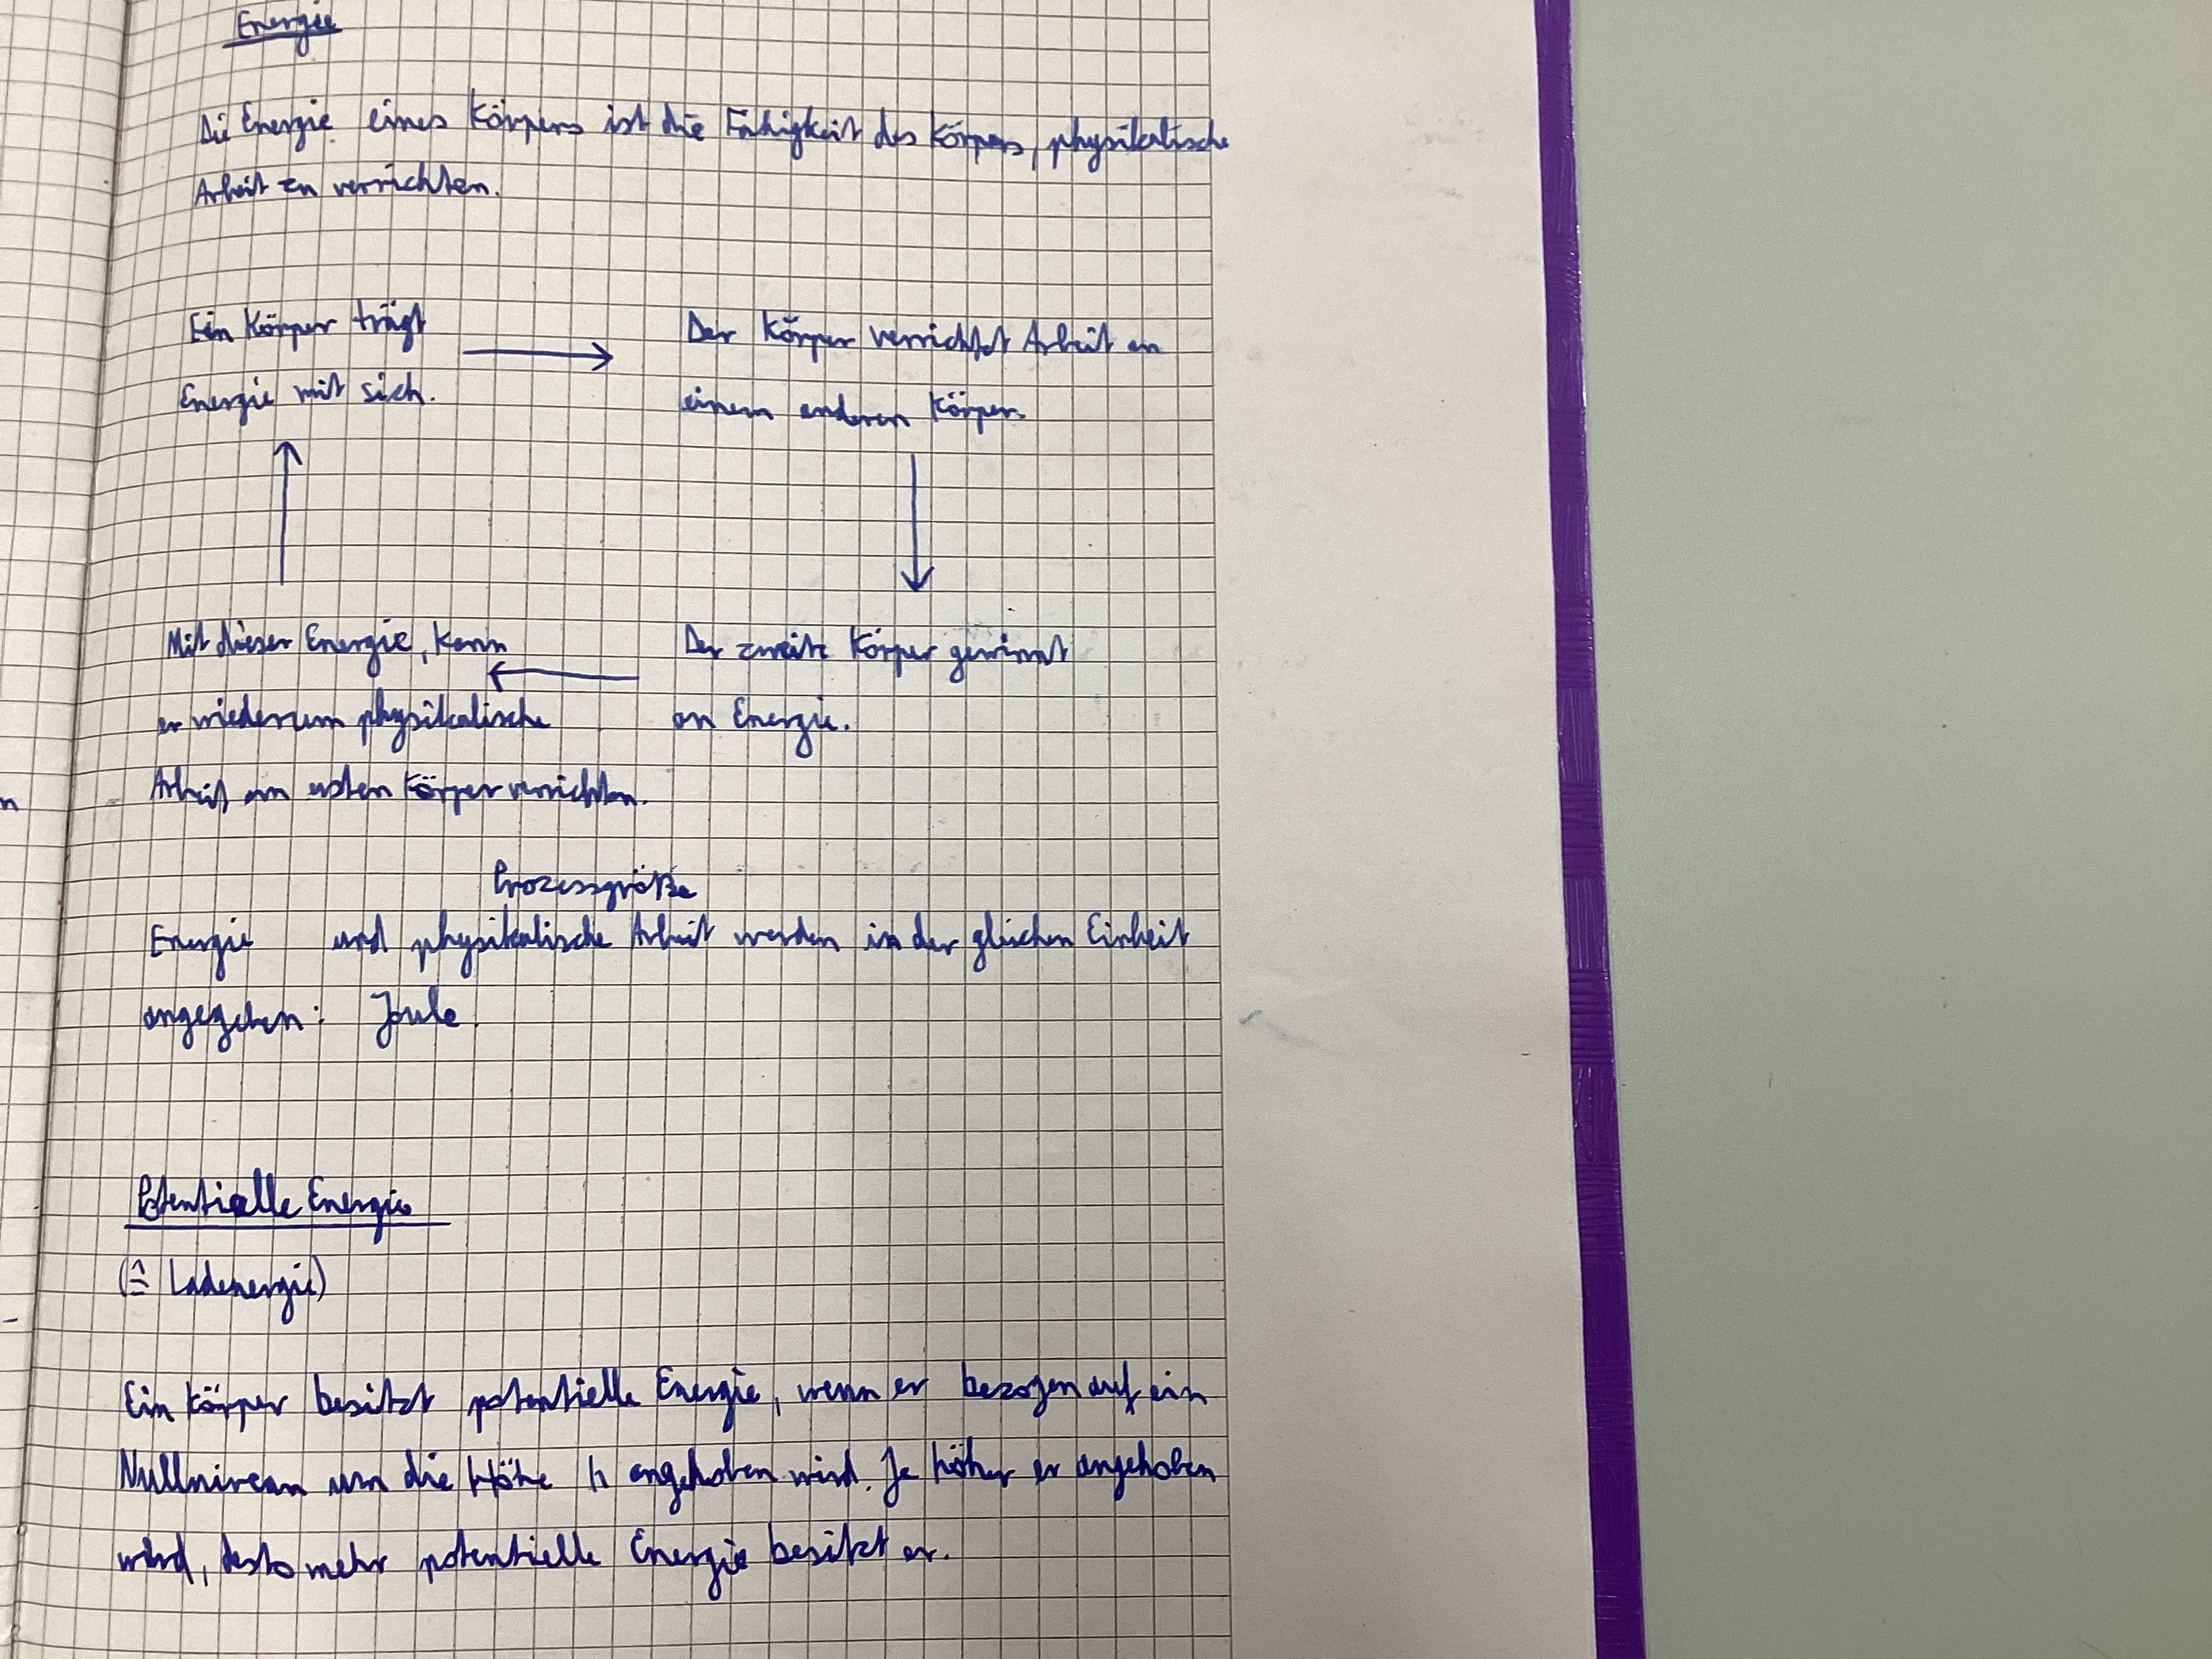 Energie
Die Energie eines Körpers ist die Fähigkeit des Körpers, physikalische
Arbeit zu verrichten.
Ein Körper trägt
Energie mit sich.
Der Körper verrichtet Arbeit an
einem anderen Körper.
Der zweite Körper gewinnt
an Energie.
Mit dieser Energie, kann
er wiederum physikalische
Arbeit am ersten Körper verrichten.
Prozessgröße
Energie und physikalische Arbeit werden in der gleichen Einheit
angegeben: Joule
Potentielle Energie
(≙ Ladenergie)
Ein Körper besitzt potentielle Energie, wenn er bezogen auf ein
Nullniveau um die Höhe h angehoben wird. Je höher er angehoben
wird, desto mehr potentielle Energie besitzt er.
n